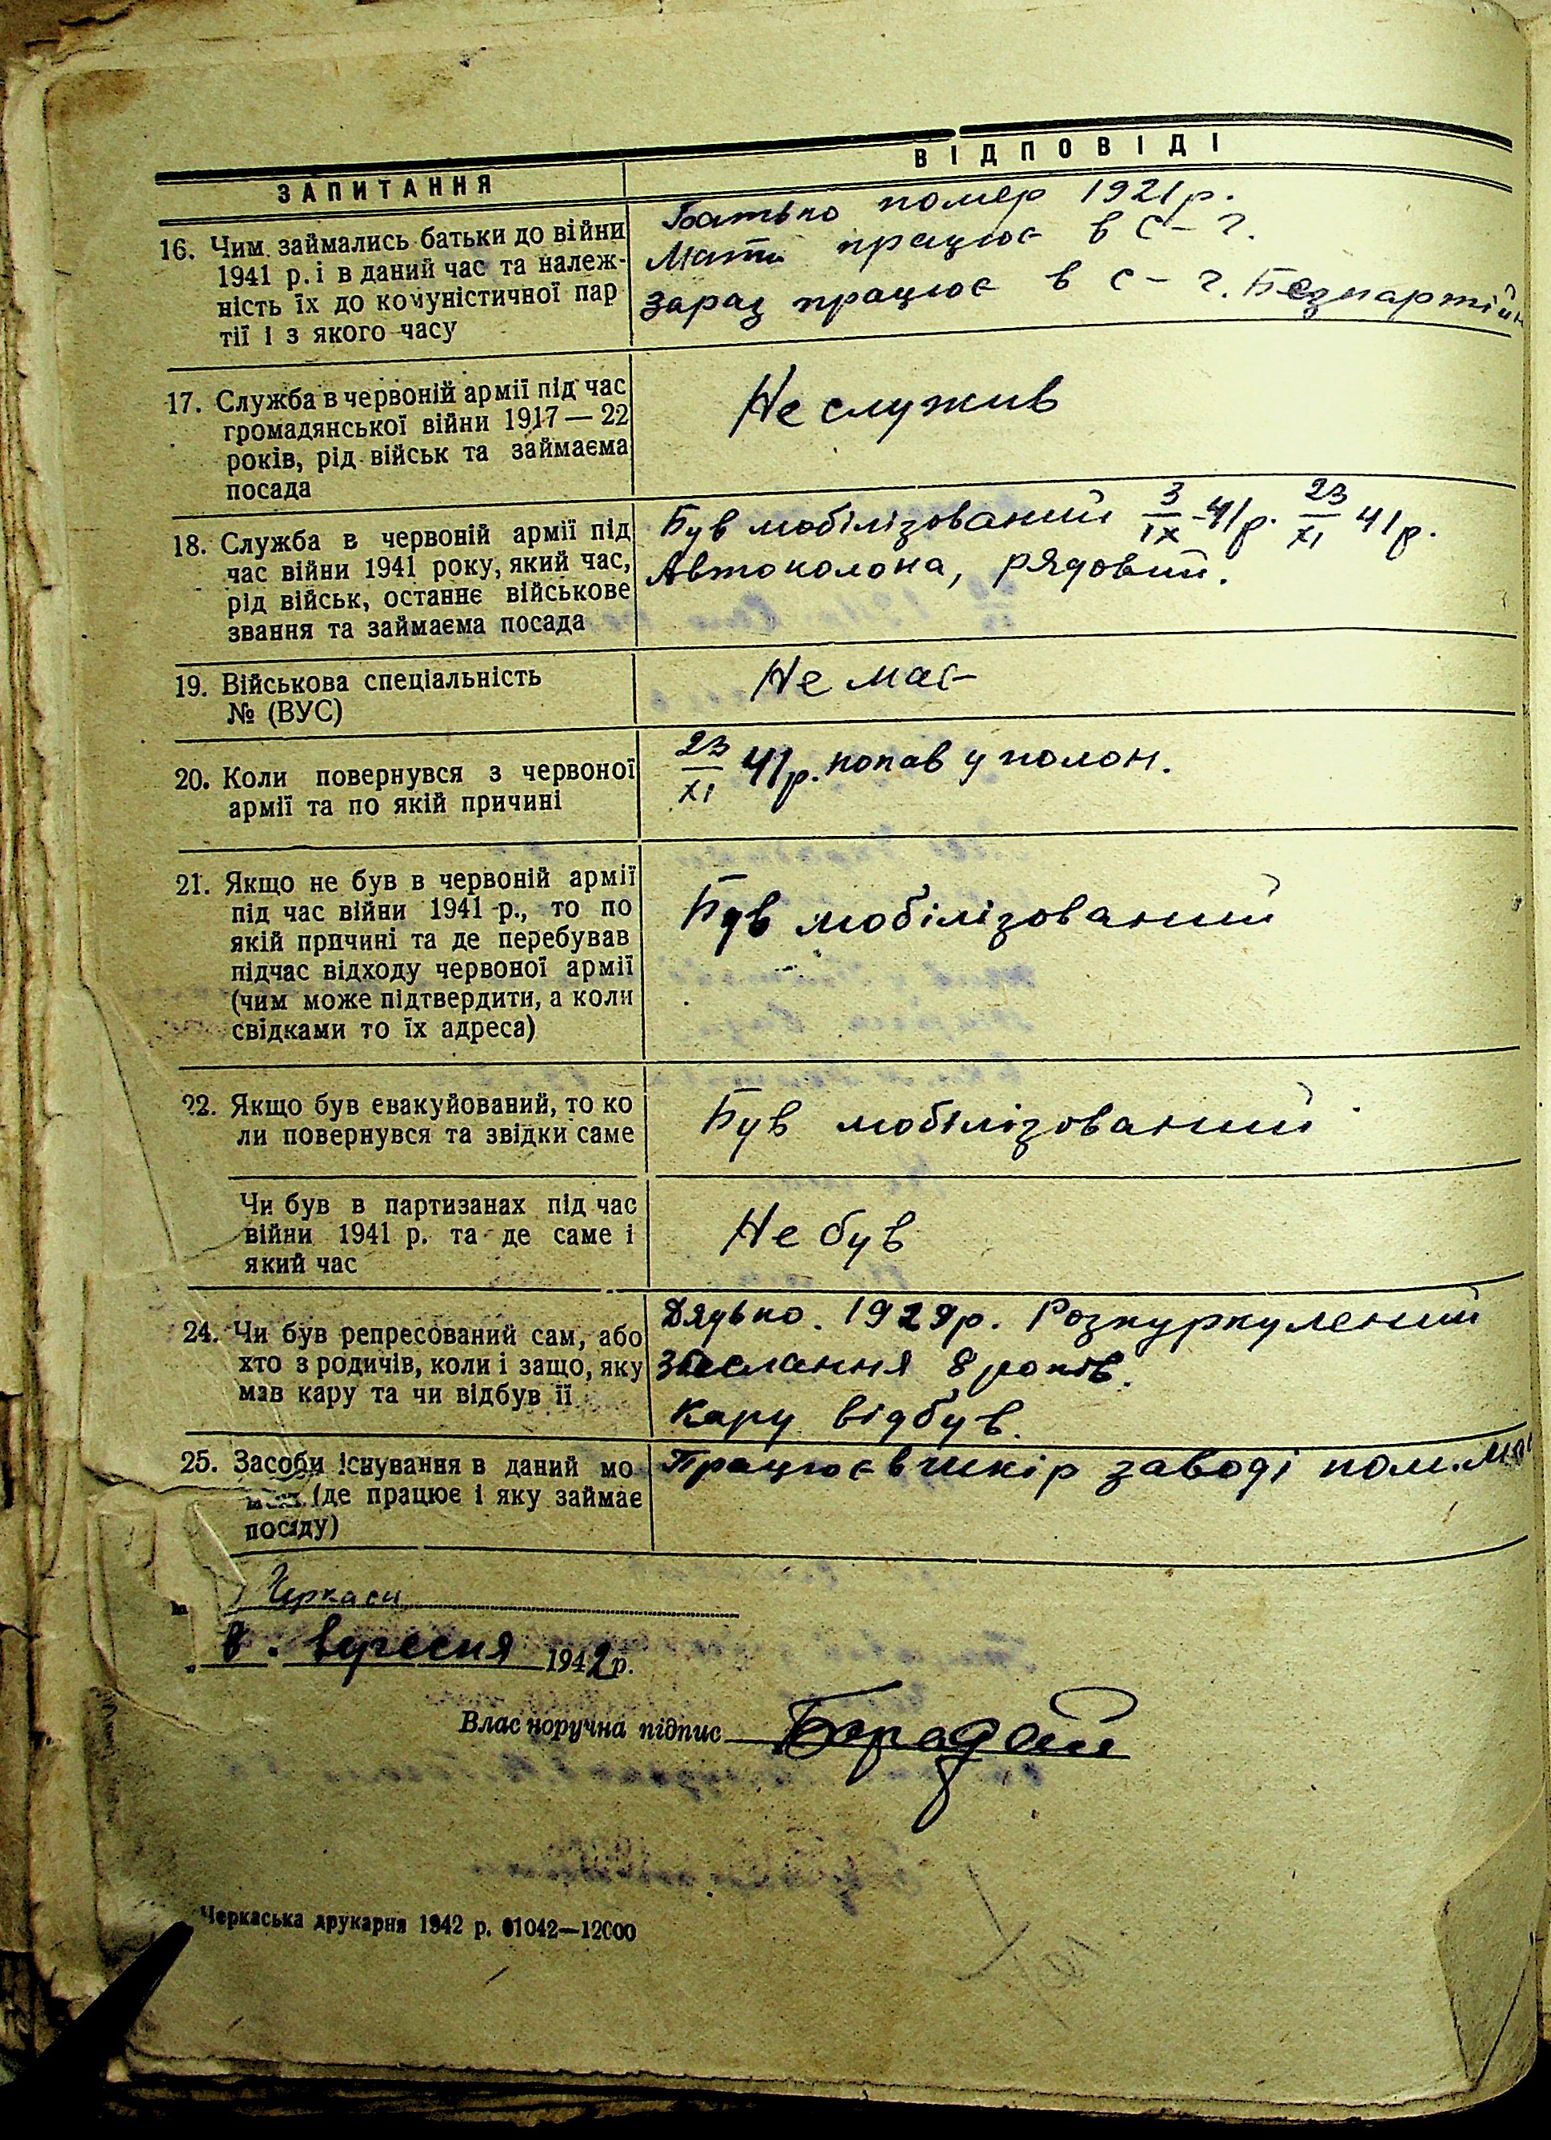 ЗАПИТАННЯ
ВІДПОВІДІ
16. Чим займались батьки до війни
1941 р. і в даний час та належ-
ність їх до комуністичної пар
тії і з якого часу
Батько помер 1921 р.
Мати працює в с-г.
Зараз працює в с-г. Безпартійн
17. Служба в червоній армії під час
громадянської війни 1917—22
років, рід військ та займаєма
посада
Не служив
18. Служба в червоній армії під
час війни 1941 року, який час,
рід військ, останнє військове
звання та займаєма посада
Був мобілізований 3/IX-41р. 23/XI 41р.
Автоколона, рядовий.
19. Військова спеціальність
№ (ВУС)
Не має
20. Коли повернувся з червоної
армії та по якій причині
23/XI 41р. попав у полон.
21. Якщо не був в червоній армії
під час війни 1941 р., то по
якій причині та де перебував
підчас відходу червоної армії
(чим може підтвердити, а коли
свідками то їх адреса)
Був мобілізований
22. Якщо був евакуйований, то ко
ли повернувся та звідки саме
Був мобілізований
Чи був в партизанах під час
війни 1941 р. та де саме і
який час
Не був
24. Чи був репресований сам, або
хто з родичів, коли і защо, яку
мав кару та чи відбув її
Дядько. 1929р. Розкуркулений
Заслання 8 років.
Кару відбув.
25. Засоби існування в даний мо
(де працює і яку займає
посаду)
Працює в шкір заводі пом.
Черкаси
8. вересня 1942 р.
Власноручна підпис Барадай
Черкаська друкарня 1942 р. 01042—12000